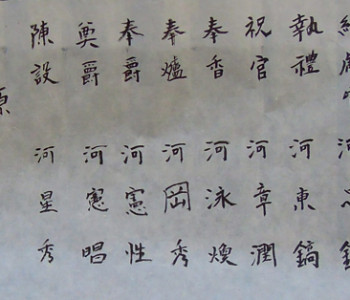 執禮 河東鎬
祝官 河章潤
奉香 河泳煥
奉爐 河岡秀
奉爵 河憲性
奠爵 河憲唱
陳設 河星秀